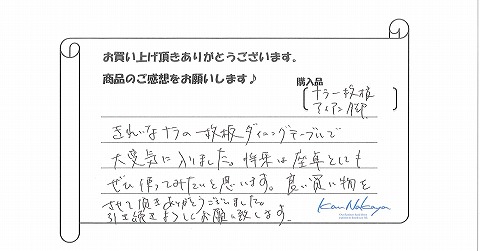 お買い上げ頂きありがとうございます。
商品のご感想をお願いします♪
購入品
ナラ一枚板
アイアン脚
きれいなナラの一枚板ダイニングテーブルで
大変気に入りました。将来は座卓としても
ぜひ使ってみたいと思います。良い買い物を
させて頂きありがとうございました。
引き続きよろしくお願い致します。